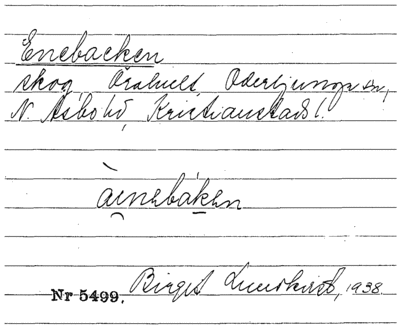 Enebacken
skog, Örahult, Oderljunga sn,
N. Åsbo hd, Kristianstads l.
àenebákən
Nr 5499. Birgit Lundkvist, 1938.